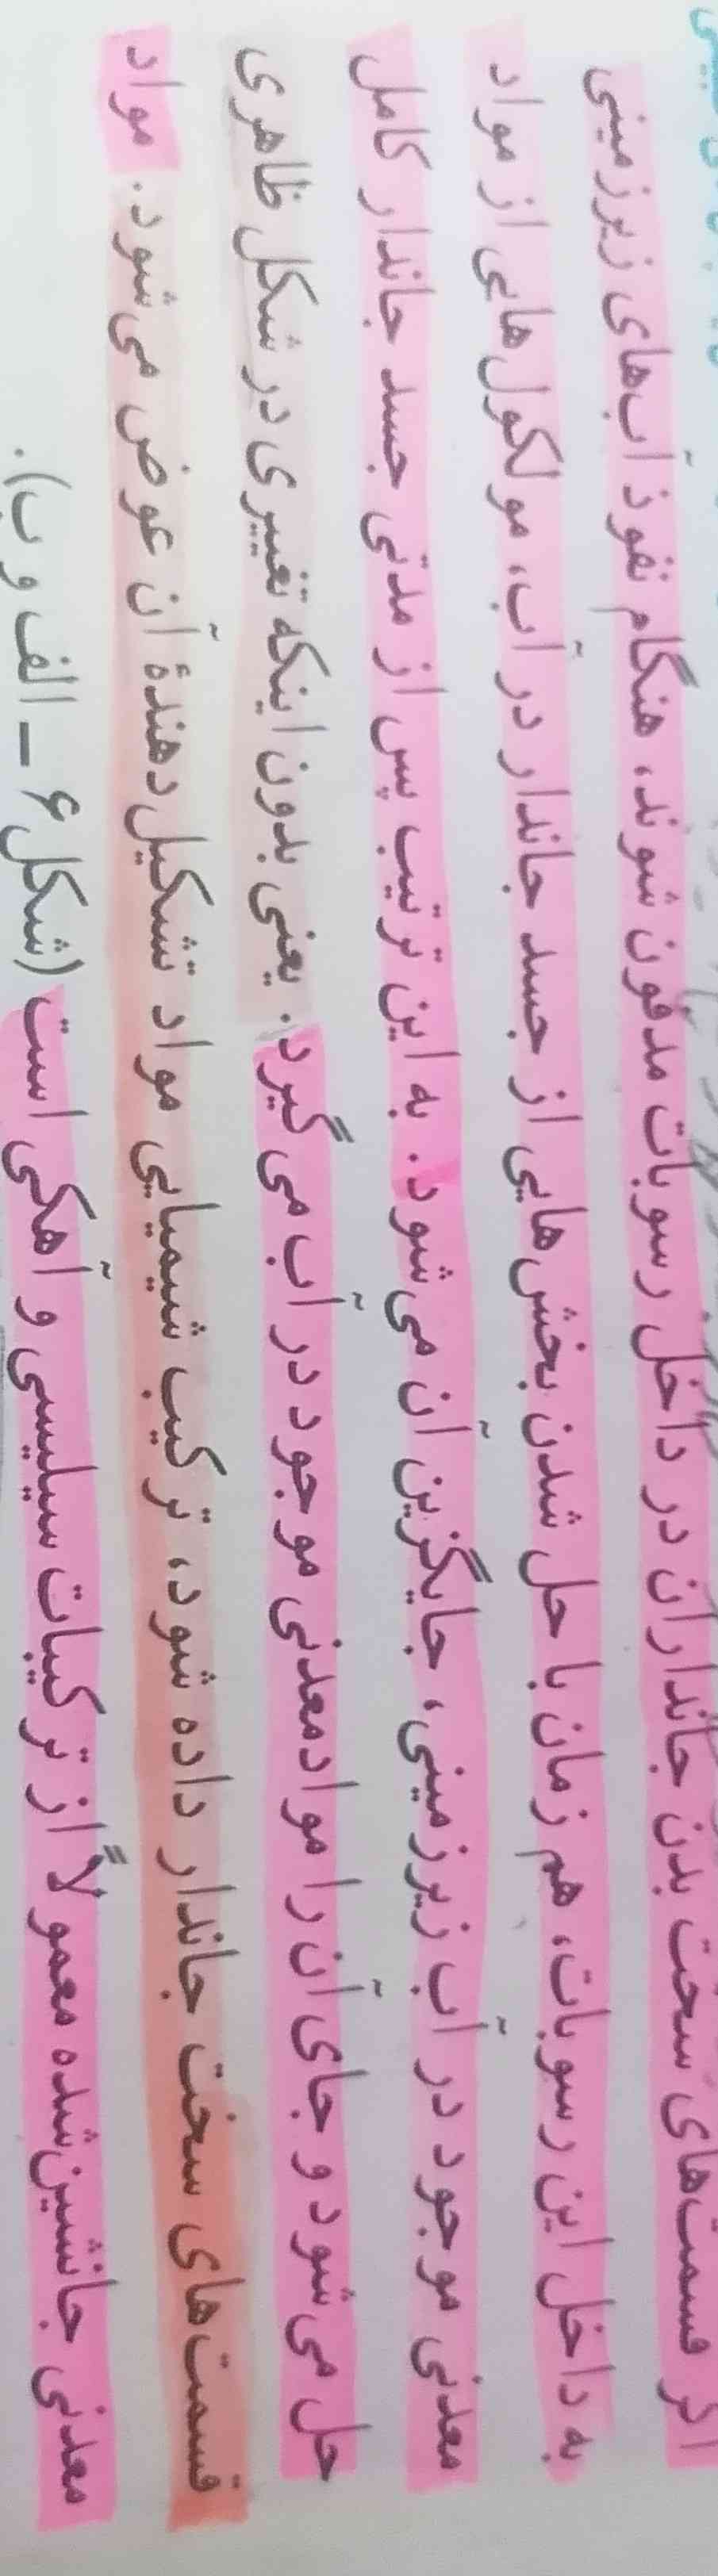 اگر قسمت‌های سخت بدن جانداران در داخل رسوبات مدفون شوند، هنگام نفوذ آب‌های زیرزمینی
به داخل این رسوبات، هم زمان با حل شدن بخش‌هایی از جسد جاندار در آب، مولکول‌هایی از مواد
معدنی موجود در آب زیرزمینی، جایگزین آن می‌شود. به این ترتیب پس از مدتی جسد جاندار کامل
حل می‌شود و جای آن را مواد معدنی موجود در آب می‌گیرد. یعنی بدون اینکه تغییری در شکل ظاهری
قسمت‌های سخت جاندار داده شود، ترکیب شیمیایی مواد تشکیل دهندهٔ آن عوض می‌شود. مواد
معدنی جانشین شده معمولاً از ترکیبات سیلیسی و آهکی است (شکل ۶ – الف و ب).